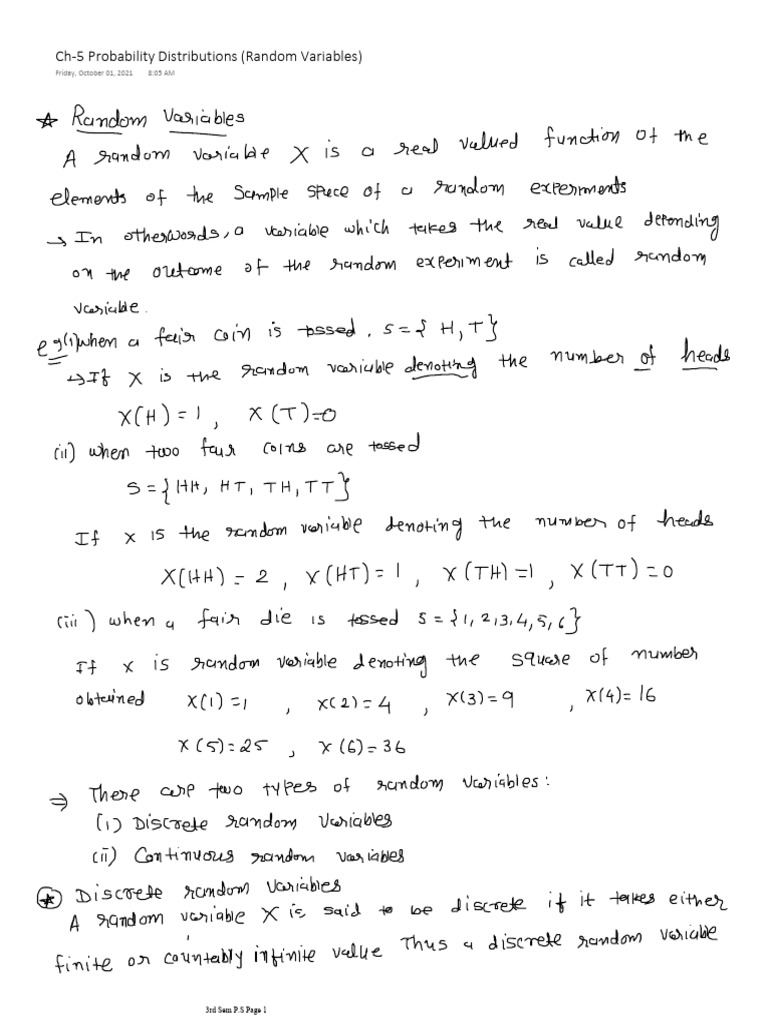 Ch-5 Probability Distributions (Random Variables)
Friday, October 01, 2021 8:05 AM
☆ Random Variables
A random variable X is a real valued function of the
elements of the sample space of a random experments
→ In otherwords, a variable which takes the real value depending
on the outcome of the random experiment is called random
variable.
eg(i) when a fair coin is tossed, S = { H, T}
→ If X is the random variable denoting the number of heads
X(H) = 1 , X(T) = 0
(ii) when two fair coins are tossed
S = {HH, HT, TH, TT}
If X is the random variable denoting the number of heads
X(HH) = 2 , X(HT) = 1 , X(TH) = 1 , X(TT) = 0
(iii) when a fair die is tossed S = {1, 2, 3, 4, 5, 6}
If X is random variable denoting the square of number
obtained X(1) = 1 , X(2) = 4 , X(3) = 9 , X(4) = 16
X(5) = 25 , X(6) = 36
⇒ There are two types of random variables:
(i) Discrete random variables
(ii) Continuous random variables
☆ Discrete random variables
A random variable X is said to be discrete if it takes either
finite or countably infinite value Thus a discrete random variable
3rd Sem P.S Page 1